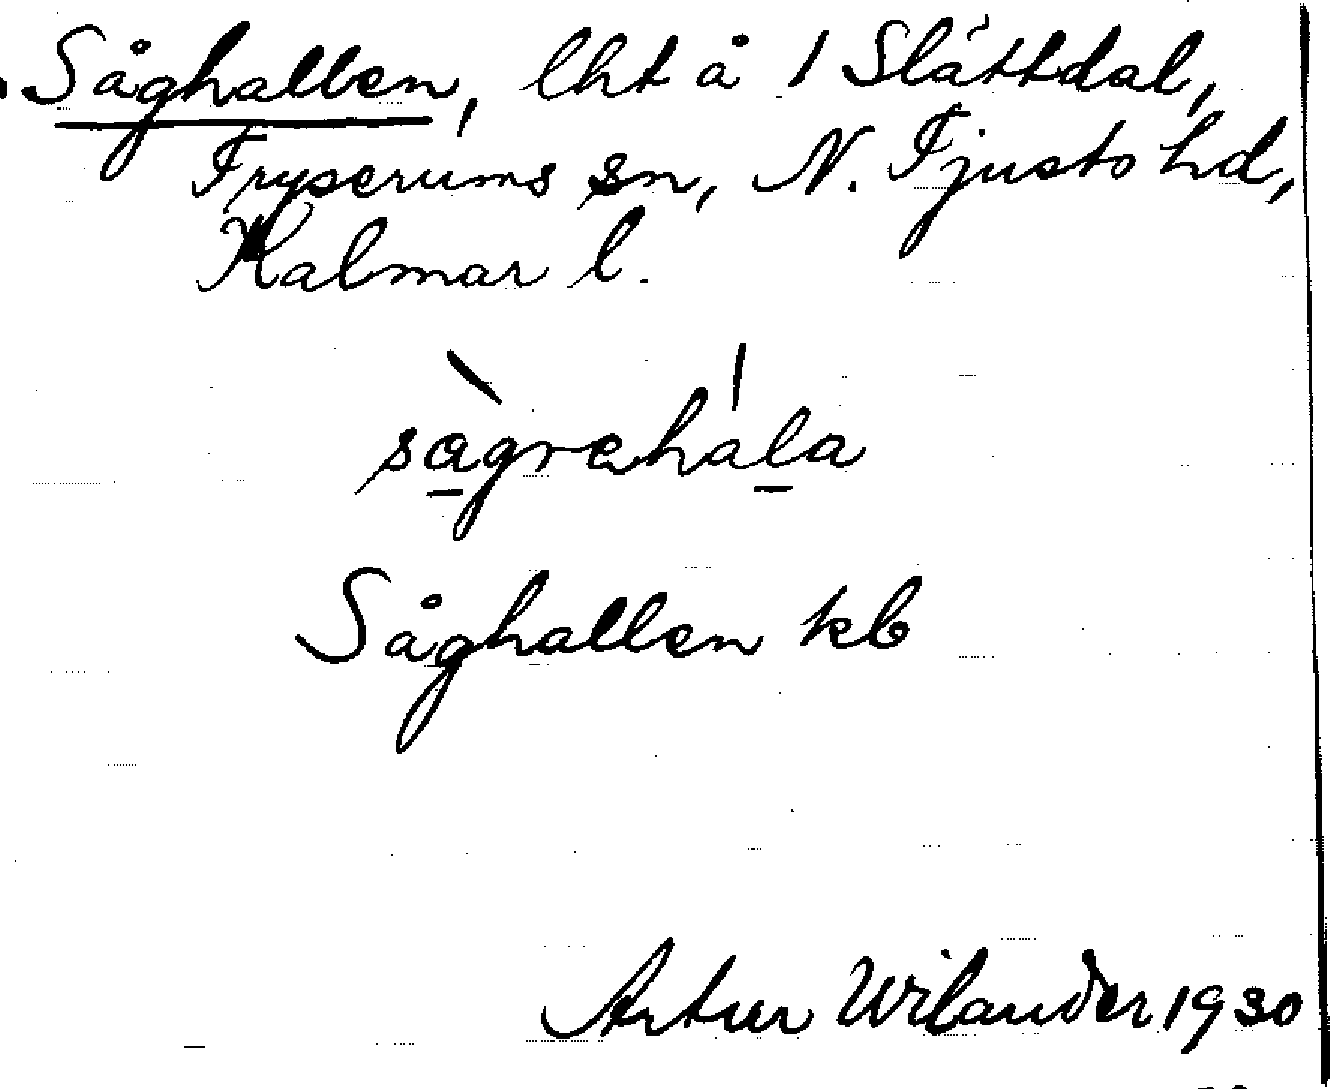 Såghallen, lht å 1 Slättdal,
Tryserums sn, N. Tjusts hd,
Kalmar l.
Såghallen kb
Artur Wilander 1930